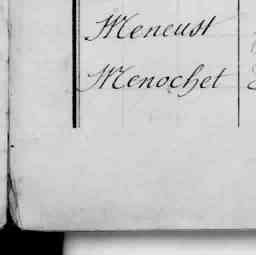 Meneust
Menochet